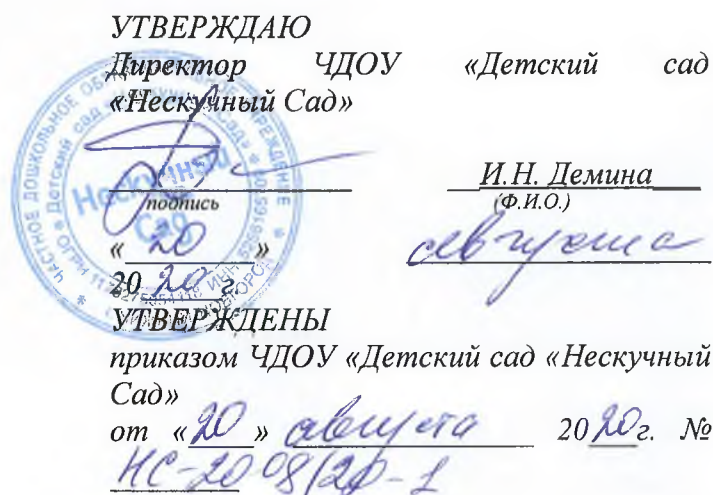 УТВЕРЖДАЮ
Директор ЧДОУ «Детский сад
«Нескучный Сад»
И.Н. Демина
подпись (Ф.И.О.)
« 20 » августа
20 20 г.
УТВЕРЖДЕНЫ
приказом ЧДОУ «Детский сад «Нескучный
Сад»
от «20» августа 2020г. №
НС-20 08/20-1
Нескучный
Сад
ЧАСТНОЕ ДОШКОЛЬНОЕ ОБРАЗОВАТЕЛЬНОЕ УЧРЕЖДЕНИЕ